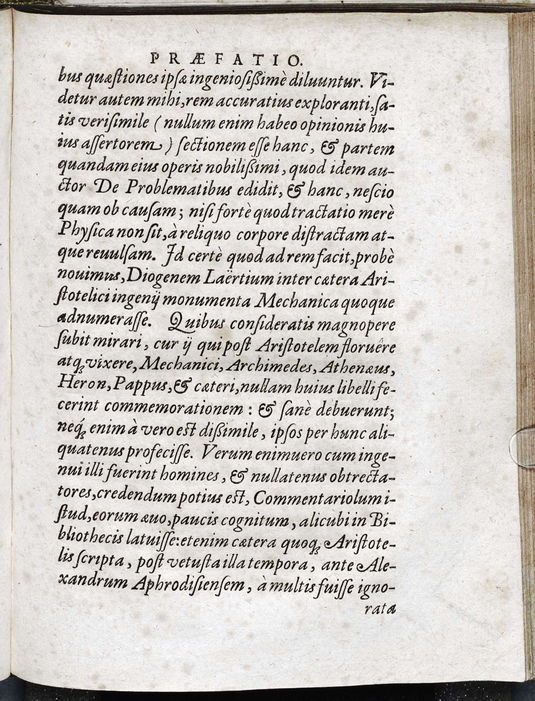 PRÆFATIO.
bus quæſtiones ipſæ ingenioſiſſimè diluuntur. Vi-
detur autem mihi, rem accuratius exploranti, ſa-
tis veriſimile (nullum enim habeo opinionis hu-
ius aſſertorem) ſectionem eſſe hanc, & partem
quandam eius operis nobiliſſimi, quod idem au-
ctor De Problematibus edidit, & hanc, neſcio
quam ob cauſam; niſi fortè quod tractatio merè
Phyſica non ſit, à reliquo corpore diſtractam at-
que reuulſam. Id certè quod ad rem facit, probè
nouimus, Diogenem Laërtium inter cætera Ari-
ſtotelici ingenij monumenta Mechanica quoque
adnumeraſſe. Quibus conſideratis magnopere
ſubit mirari, cur ij qui poſt Ariſtotelem floruêre
atq; vixere, Mechanici, Archimedes, Athenæus,
Heron, Pappus, & cæteri, nullam huius libelli fe-
cerint commemorationem: & ſanè debuerunt;
neq; enim à vero eſt diſſimile, ipſos per hunc ali-
quatenus profeciſſe. Verum enimuero cum inge-
nui illi fuerint homines, & nullatenus obtrecta-
tores, credendum potius eſt, Commentariolum i-
ſtud, eorum æuo, paucis cognitum, alicubi in Bi-
bliothecis latuiſſe: etenim cætera quoq; Ariſtote-
lis ſcripta, poſt vetuſta illa tempora, ante Ale-
xandrum Aphrodiſienſem, à multis fuiſſe igno-
rata